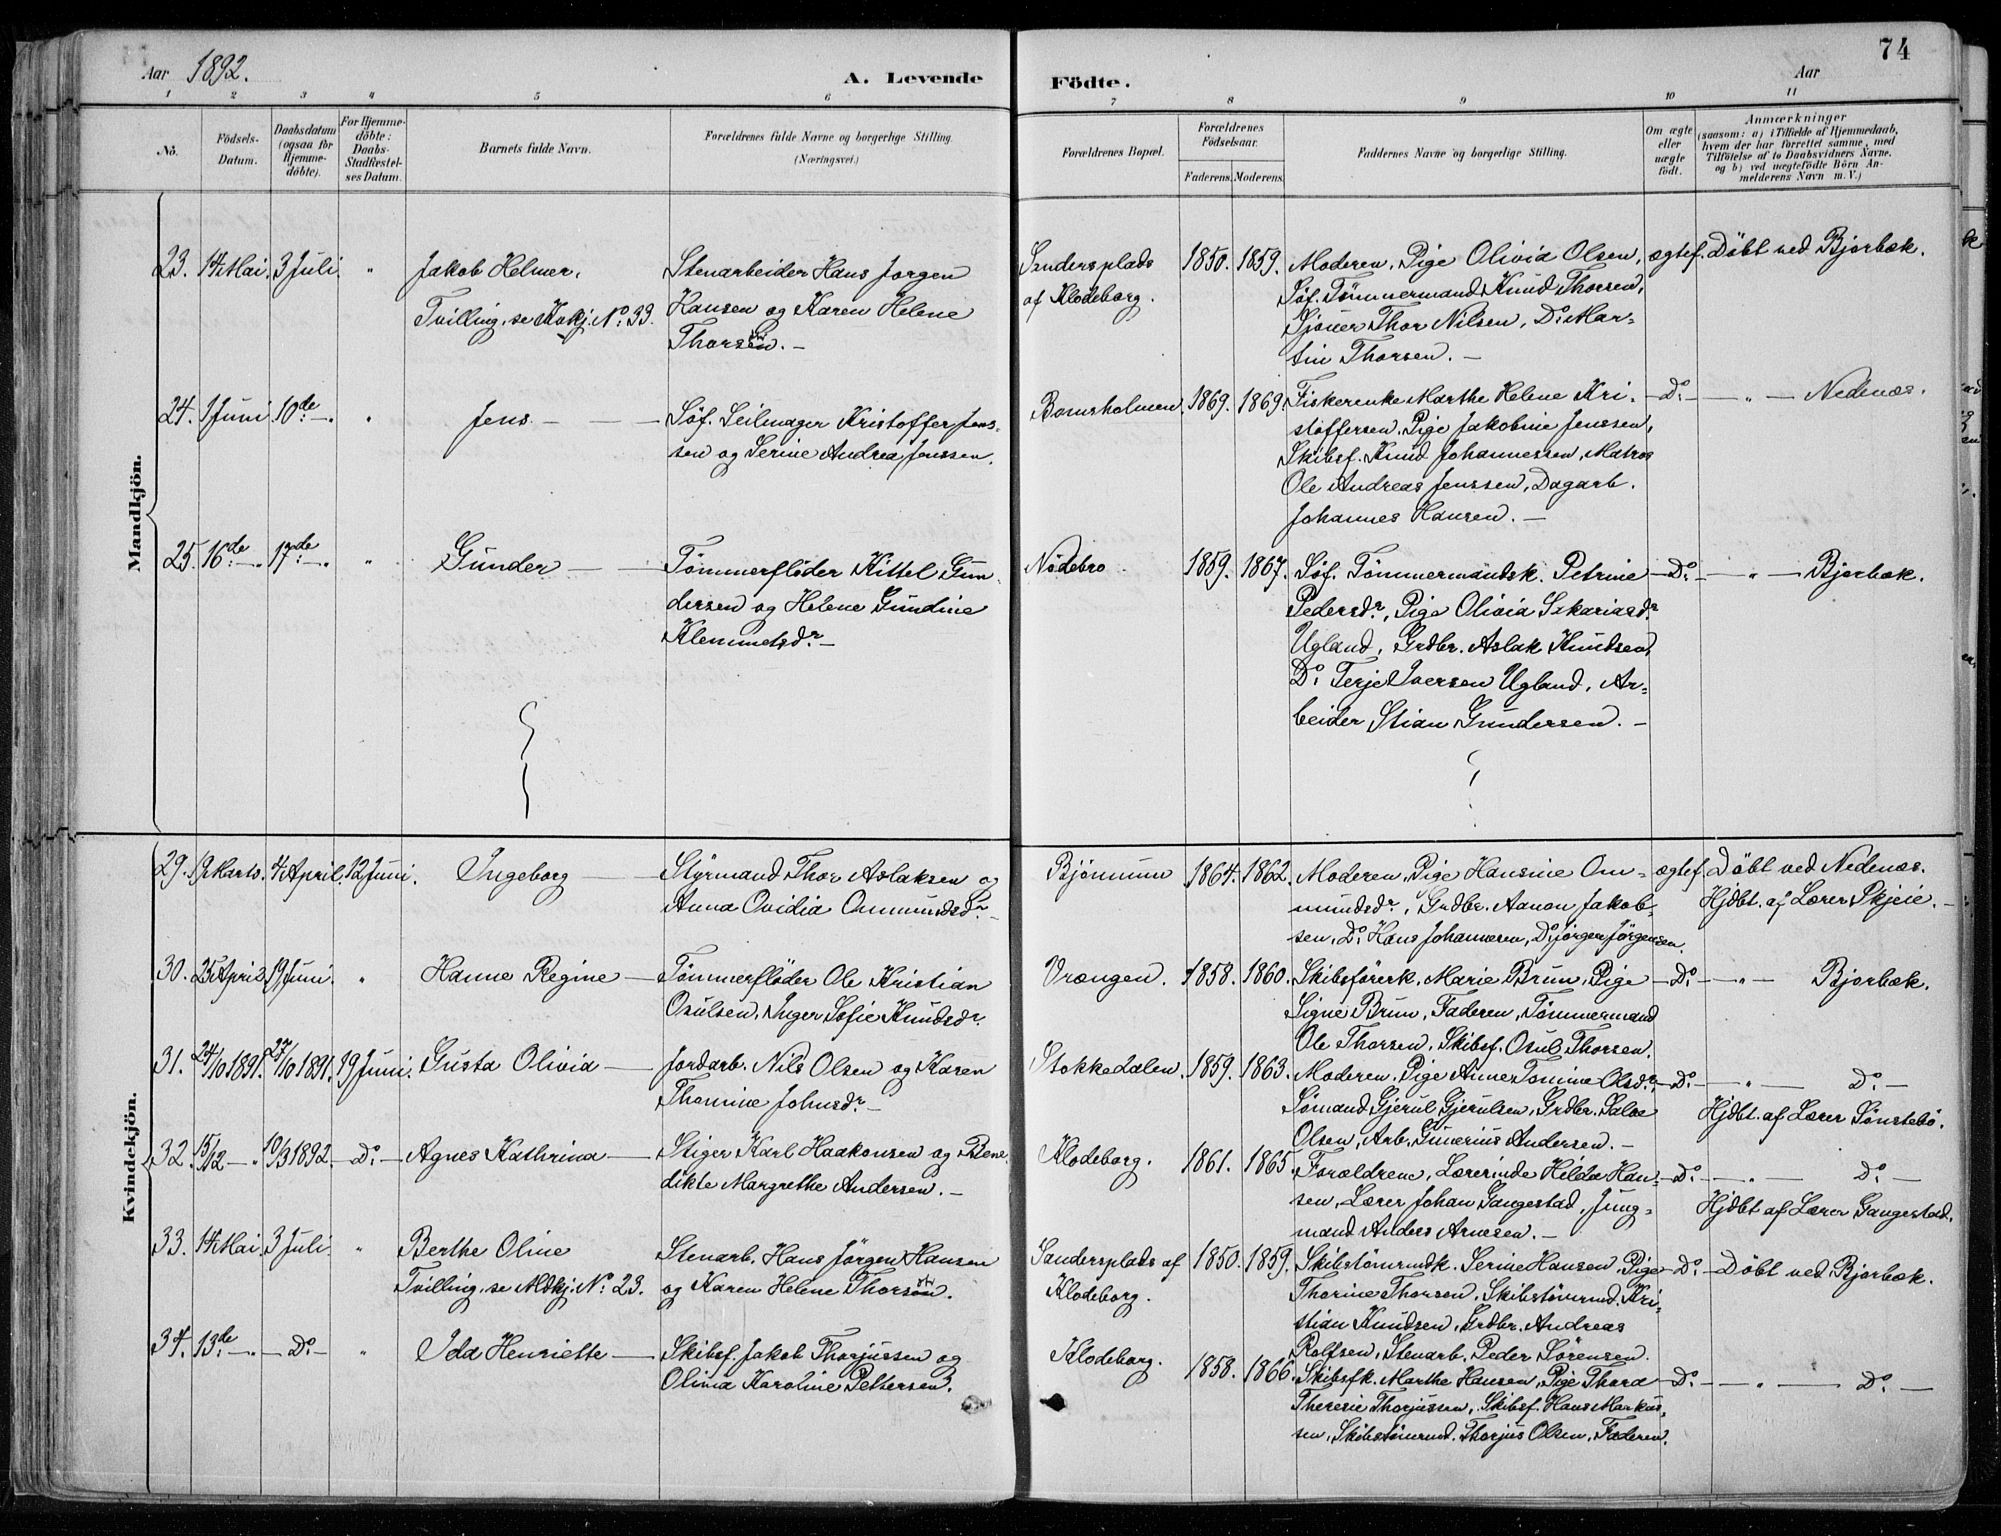 Aar 1892.
A. Levende
Födte.
Aar
74
1 2 3 4 5 6 7 8 9 10 11
Nö.
Födsels-
Datum.
Daabsdatum
(ogsaa for
Hjemme-
döbte).
For Hjemme-
döbte:
Daabs-
Stadfæstel-
ses Datum.
Barnets fulde Navn.
Forældrenes fulde Navne og borgerlige Stilling.
(Næringsvei.)
Forældrenes Bopæl.
Forældrenes
Födselsaar.
Faderens. Moderens.
Faddernes Navne og borgerlige Stilling.
Om ægte
eller
uægte
födt.
Anmærkninger
(saasom: a) i Tilfælde af Hjemmedaab,
hvem der har forrettet samme, med
Tilföielse af to Daabsvidners Navne.
og b) ved uægtefödte Börn An-
melderens Navn m. V.)
Mandkjön.
23. 14 Mai. 3 Juli. "
Jakob Helmer.
Tvilling, se Kvkj. No: 33.
Stenarbeider Hans Jorgen
Hansen og Karen Helene
Thorsen. —
Sandersplads
af Klodeborg.
1850. 1859.
Moderen, Pige Olivia Olsen,
Söf. Tømmermand Knud Thorsen,
Sjouer Thor Nilsen, Do: Mar-
tin Thorsen. —
ægtef. Döbt ved Bjorbæk.
24. 1 Juni. 10de — " "
Jens. — —
Söf. Seilmager Kristoffer Jens-
sen og Serine Andrea Jenssen.
Bomsholmen. 1869. 1869.
Fiskerenke Marthe Helene Kri-
stoffersen, Pige Jakobine Jenssen,
Skibsf. Knud Johannessen, Matros
Ole Andreas Jenssen, Dagarb.
Johannes Hansen. —
— Do: — " — Nedenæs.
25. 16de — " 17de — " "
Gunder — —
Tømmerfløder Kittel Gun-
dersen og Helene Gundine
Klemmetsdr —
Nödebro 1859. 1867.
Söf. Tømmermandsk. Petrine
Pedersdr, Pige Olivia Zakariasdr
Ugland, Grdbr. Aslak Knudsen,
Do: Terje Iversen Ugland, Ar-
beider Stian Gundersen. —
— Do: — " — Bjorbæk.
Kvindekjön.
29. 19 Marts. 4 April. 12 Juni.
Ingeborg —
Styrmand Thor Aslaksen og
Anna Ovidia Ommundsdr —
Bjönnum 1864. 1862.
Moderen, Pige Hansine Om-
mundsdr, Grdbr. Aanon Jakob-
sen, Do: Hans Johannesen, Do: Jörgen Jörgensen.
ægtef. Döbt ved Nedenæs.
Hjdbt. af Lærer Skjeie. —
30. 25 April. 19 Juni. "
Hanne Regine —
Tömmerflöder Ole Kristian
Osulsen, Inger Sofie Knudsdr
Vrængen. 1858. 1860.
Skibsförerk. Marie Brun, Pige
Signe Brun, Faderen, Tömmermand
Ole Thorsen, Skibsf. Osul Thorsen.
— Do: — " — Bjorbæk.
31. 24/10 1891. 27/10 1891. 19 Juni.
Gusta Olivia —
Jordarb. Nils Olsen og Karen
Thomine Johnsdr —
Stokkedalen. 1859. 1863.
Moderen, Pige Anne Tomine Olsdr,
Sömand Gjerul Gjerulsen, Grdbr. Salve
Olsen, Arb. Gunerius Andersen. —
— Do: — " — Do: —
Hjdbt. af Lærer Sönstebö.
32. 15/12 — " 10/3 1892. — Do: —
Agnes Kathrina —
Stiger Karl Haakonsen og Bene-
dikte Margrethe Andersen. —
Klodeborg. 1861. 1865.
Forældrene, Lærerinde Hilda Han-
sen, Lærer Johan Gangestad, Jung-
mand Anders Arnesen. —
— Do: — " — Do: —
Hjdbt. af Lærer Gangestad.
33. 14 Mai. 3 Juli. "
Berthe Oline
Tvilling, se Mdkj. No: 23.
Stenarb. Hans Jörgen Hansen
og Karen Helene Thorsen.
Sandersplads af
Klodeborg.
1850. 1859.
Skibstömmdk. Serine Hansen, Pige
Thorine Thorsen, Skibstömmd. Kri-
stian Knudsen, Grdbr. Andreas
Rolfsen, Stenarb. Peder Sörensen.
— Do: — Döbt ved Bjorbæk.
34. 13de — " — Do: — "
Ida Henriette —
Skibsf. Jakob Thorjussen og
Olivia Karoline Pettersen.
Klodeborg. 1858. 1866.
Skibsfk. Marthe Hansen, Pige Thora
Theresie Thorjussen, Skibsf. Hans Markus-
sen, Skibstömmd. Thorjus Olsen, Faderen.
— Do: — " — Do: —